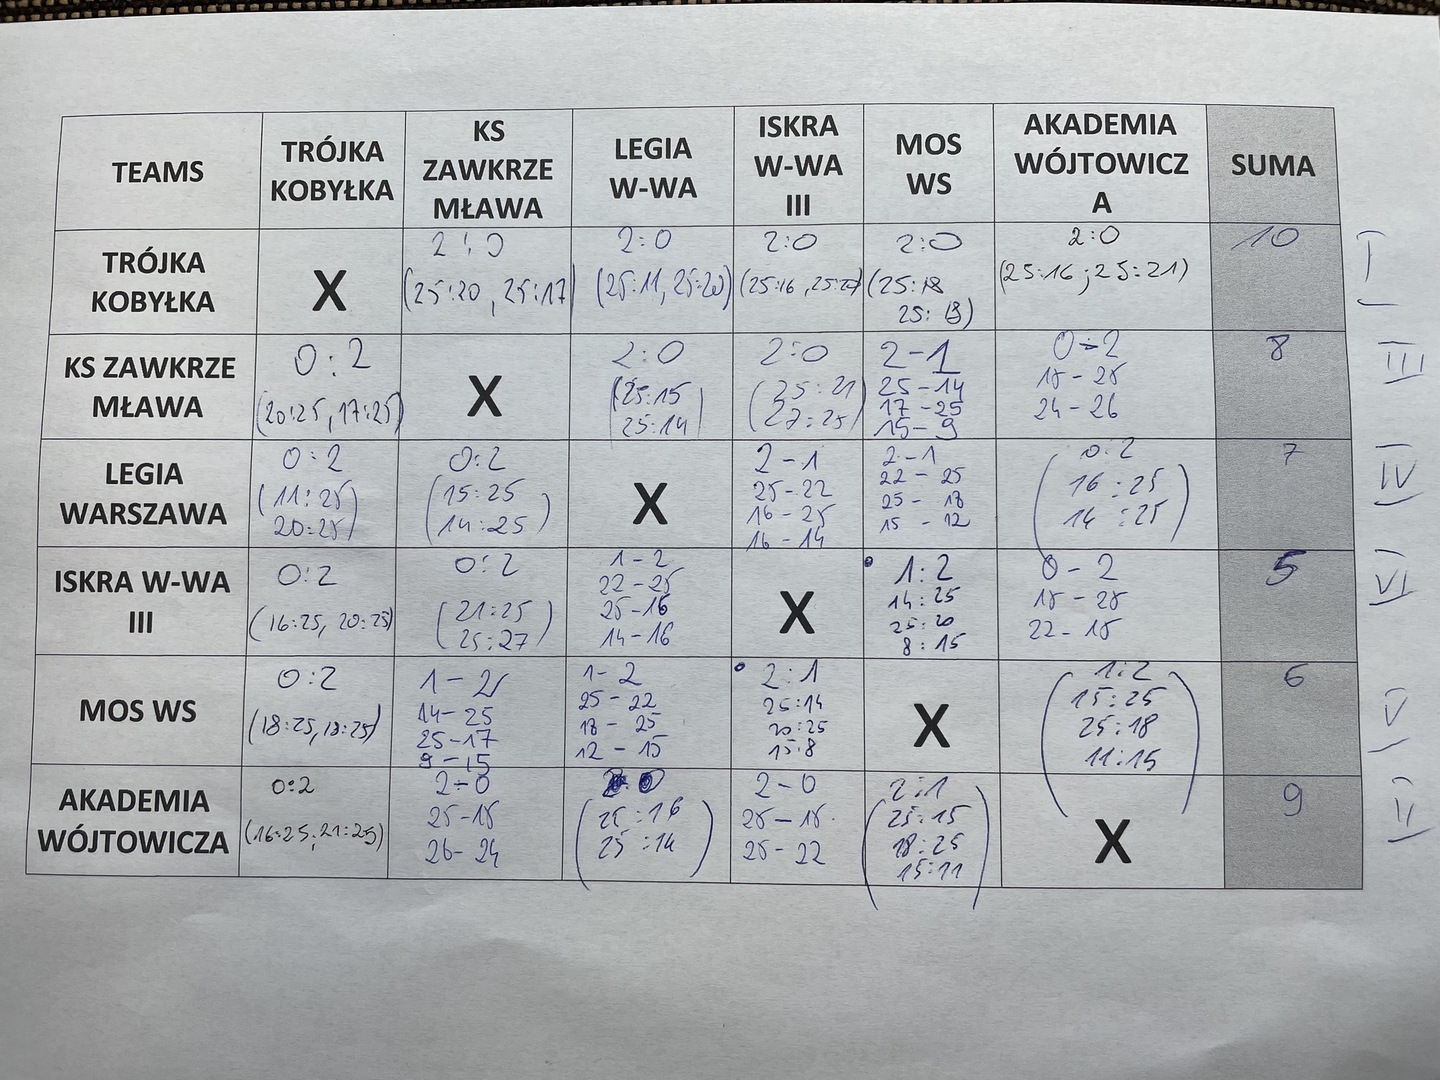 TEAMS
TRÓJKA
KOBYŁKA
KS
ZAWKRZE
MŁAWA
LEGIA
W-WA
ISKRA
W-WA
III
MOS
WS
AKADEMIA
WÓJTOWICZ
A
SUMA
TRÓJKA
KOBYŁKA
X
2:0
(25:20, 25:17)
2:0
(25:11, 25:20)
2:0
(25:16, 25:
2:0
(25:18
25:13)
2:0
(25:16; 25:21)
10
I
KS ZAWKRZE
MŁAWA
0:2
(20:25, 17:25)
X
2:0
(25:15
25:14)
2:0
(25:21
27:25)
2-1
25-14
17-25
15-9
0-2
15-25
24-26
8
III
LEGIA
WARSZAWA
0:2
(11:25
20:25)
0:2
(15:25
14:25)
X
2-1
25-22
16-25
16-14
2-1
22-25
25-18
15-12
0:2
(16:25
14:25)
7
IV
ISKRA W-WA
III
0:2
(16:25, 20:25)
0:2
(21:25
25:27)
1-2
22-25
25-16
14-16
X
1:2
14:25
25:20
8:15
0-2
15-25
22-15
5
VI
MOS WS
0:2
(18:25, 13:25)
1-2
14-25
25-17
9-15
1-2
25-22
18-25
12-15
2:1
25:14
20:25
15:8
X
1:2
(15:25
25:18
11:15)
6
V
AKADEMIA
WÓJTOWICZA
0:2
(16:25; 21:25)
2-0
25-15
26-24
2:0
(25:16
25:14)
2-0
25-15
25-22
2:1
(25:15
18:25
15:11)
X
9
II